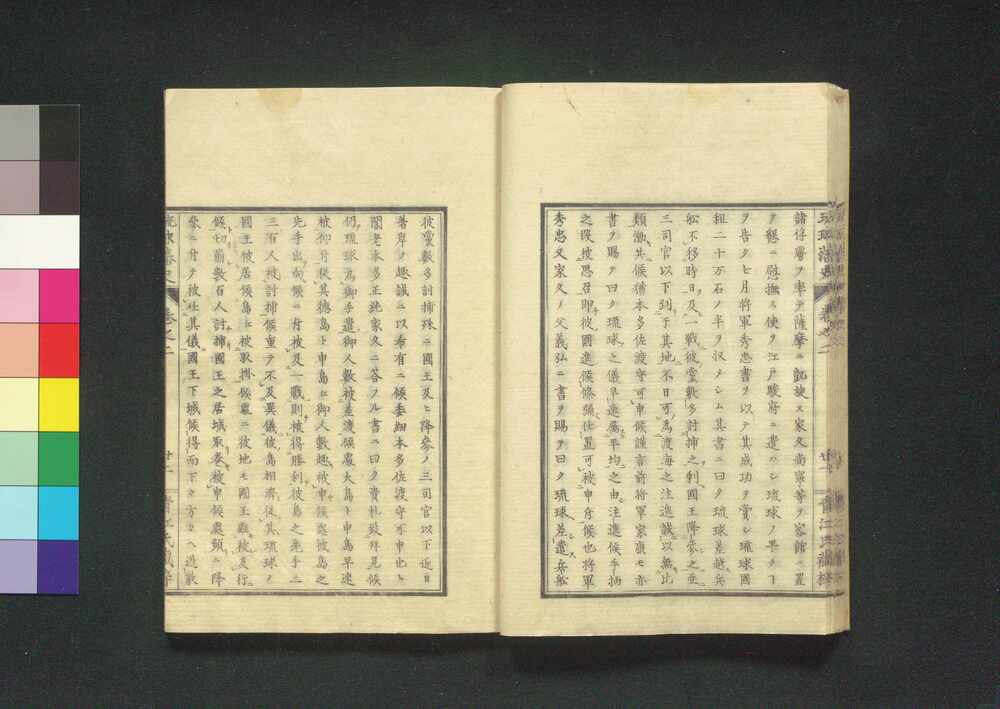 諸俘虜ヲ率テ薩摩ニ凱旋ス家久尚寧等ヲ客館ニ置
テ懇ニ慰撫ス使ヲ江戸駿府ニ遣ハシ琉球ノ平ク
ヲ告ク七月將軍秀忠書ヲ以テ其成功ヲ賞シ琉球國
租二十万石ノ半ヲ収メシム其書ニ曰ク琉球差越兵
舩不移時日及一戰彼黨數多討捕之刻國王降參之並
三司官以下到于其地不日可爲渡海之注進誠以無比
類働共候猶本多佐渡守可申候謹言前將軍家康モ亦
書ヲ賜フ曰ク琉球之儀早速屬平均之由注進候手柄
之段被思召即彼國進候條彌仕置可被申付候也將軍
秀忠又家久ノ父義弘ニ書ヲ賜ヲ曰ク琉球差遣兵舩
彼黨數多討捕殊ニ國王及ヒ降參ノ三司官以下近日
著岸ノ趣誠ニ以希有ニ候委細本多佐渡守可申也ト
閣老本多正純家久ニ答フル書ニ曰ク貴札致拜見候
仍琉球爲御手遣御人數被差渡候處大島ト申島早速
被仰付從其德島ト申島江御人數趣被申候處彼島之
先手出向候ニ付被及一戰則被得勝利彼島之先手二
三百人被討捕候重テ不及異儀彼島相濟從其琉球ノ
國王被居候島江被取掛候處ニ彼地モ國王雖被及行
候切崩數百人討捕國王之居城取卷被申候處頻ニ降
參ニ付テ被仕其儀國王下城候得而下々方々ヘ逃散
琉球藩史 卷之二
廿一
青江氏藏梓